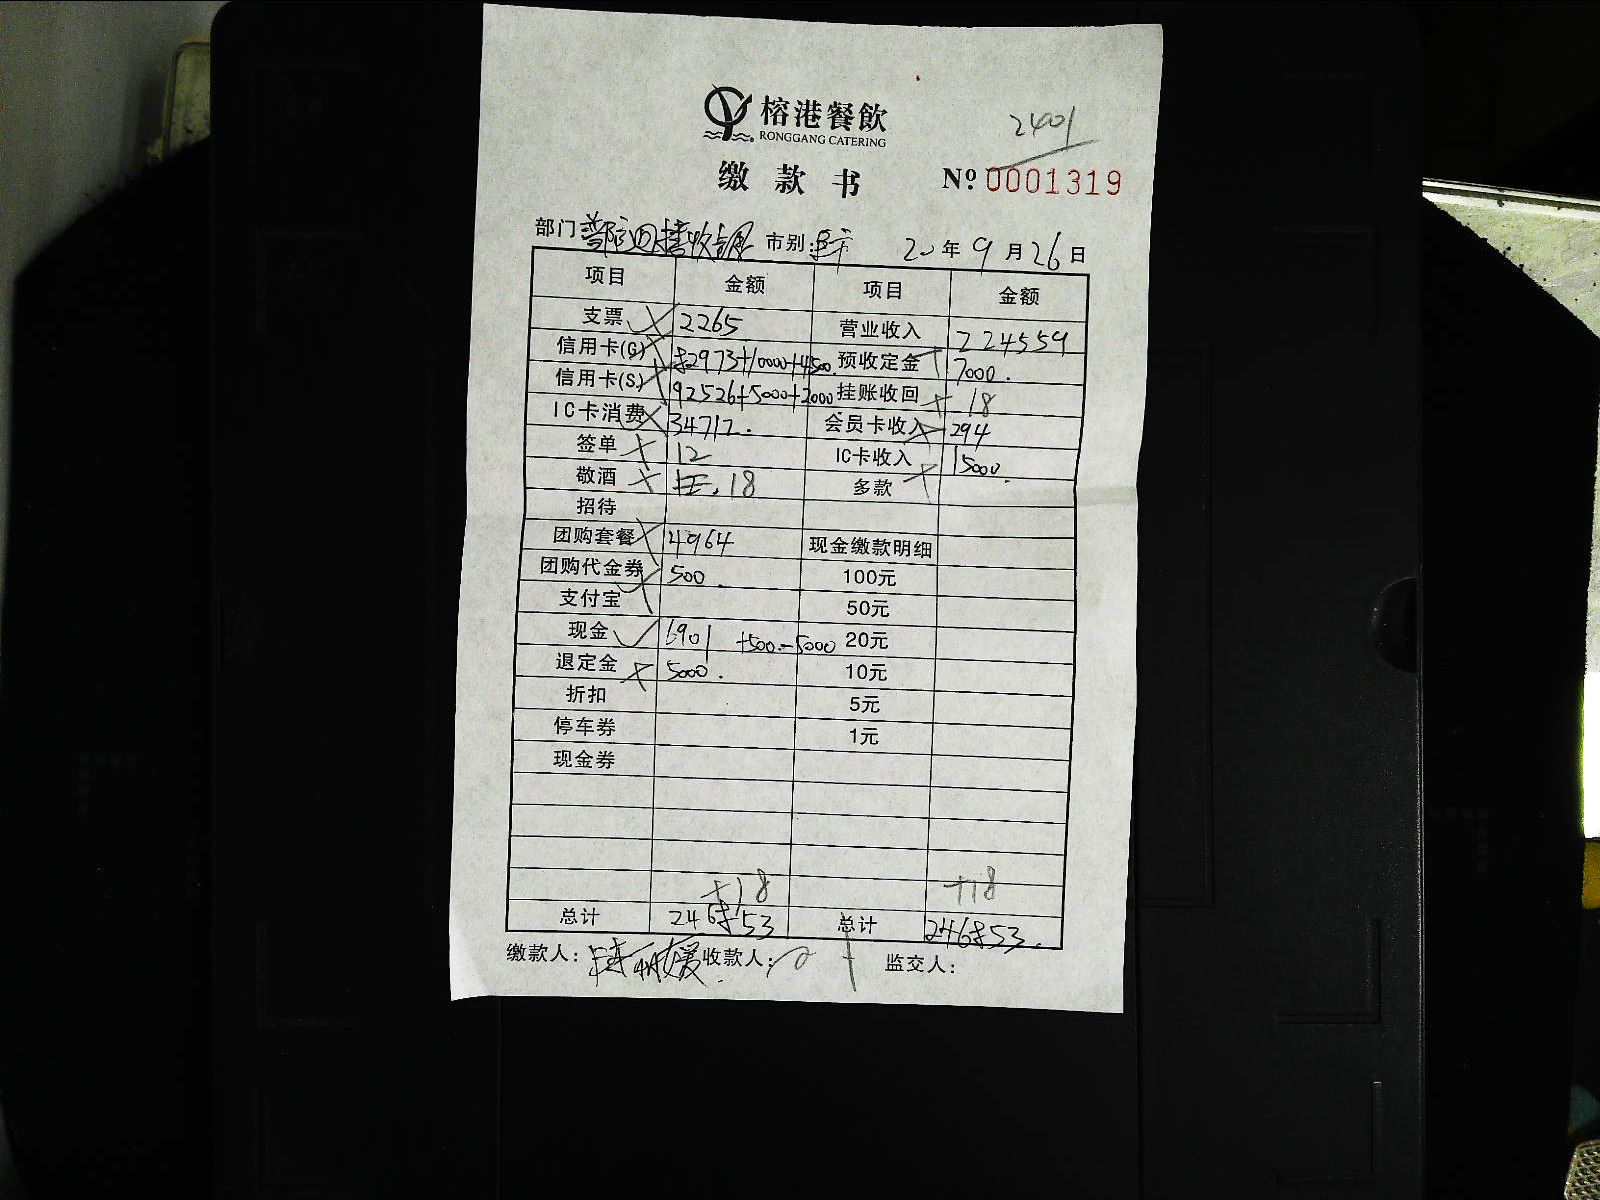 榕港餐飲
RONGGANG CATERING
2401
缴款书 Nº 0001319
部门 市别: 20 年 9 月 26 日
项目 金额 项目 金额
支票 2265 营业收入 224559
信用卡(G) 82973+10000+4500 预收定金 7000.
信用卡(S) 92526+5000+2000 挂账收回 18
IC卡消费 34712. 会员卡收入 294
签单 12 IC卡收入 15000.
敬酒 18 多款
招待
团购套餐 4964 现金缴款明细
团购代金券 500. 100元
支付宝 50元
现金 6901 +500.-5000 20元
退定金 5000. 10元
折扣 5元
停车券 1元
现金券
+18 +18
总计 246853 总计 246853.
缴款人: 收款人: 监交人: